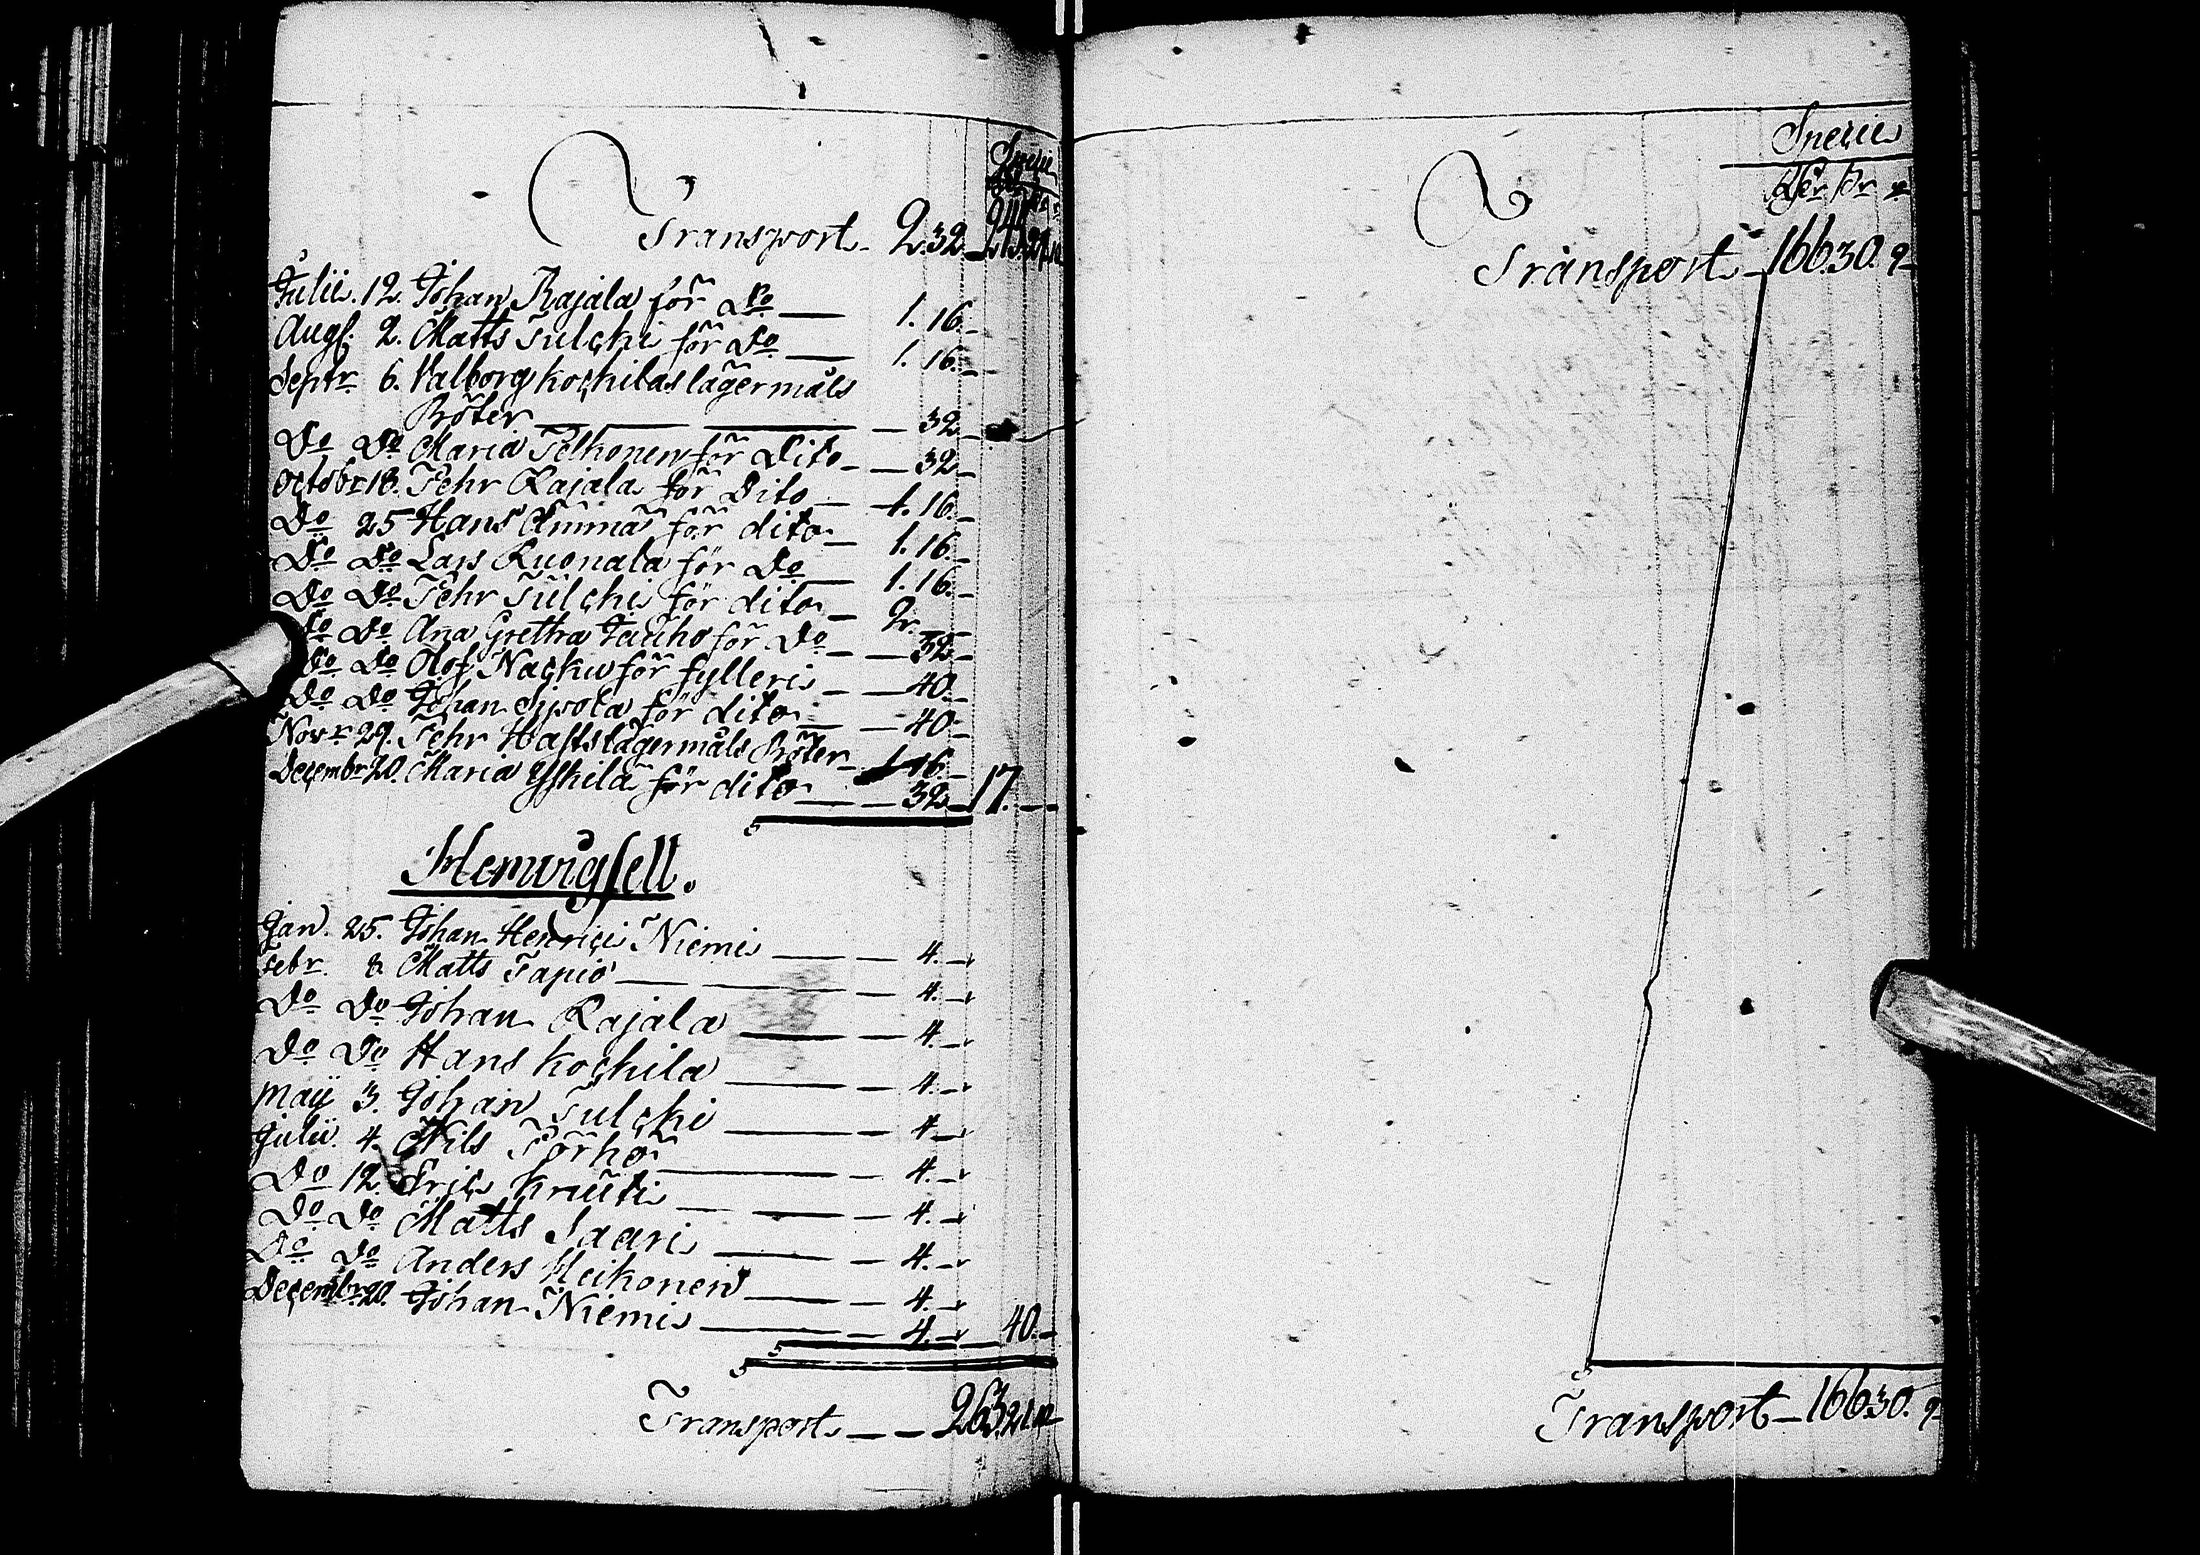 Specie
Transport 2. 32.
Julii. 12. Johan Rajala för Do 1. 16.
Augs. 2. Matts Tulcki för Do 1. 16.
Septr 6. Valborg Kockila lägermåls
Böter 32
Do Do Maria Pelkonen för Dito 32
Octobr 18. Pehr Rajala för Dito 1. 16.
Do 25 Hans Ämmä för dito 1. 16.
Do Do Lars Ruonala för Do 1. 16.
Do Do Pehr Tulcki för dito 2.
Do Do Ana Gretha Jauho för Do 32
Do Do Olof Nacku för fylleri 40.
Do Do Johan Sipola för dito 40.
Novr 29. Pehr Hast lägermåls Böter 1 16.
Decembr 20. Maria Yskilä för dito 32 17.
Hemvigsell.
Jan. 25. Johan Henrici Niemi 4.
Febr. 8 Matts Tapio 4.
Do Do Johan Rajala 4.
Do Do Hans Kockila 4.
Maij 3. Johan Tulcki 4.
Julii. 4. Nils Törhö 4.
Do 12. Eric Kruuti 4.
Do Do Matts Saari 4.
Do Do Anders Heikonen 4.
Decembr 20. Johan Niemi 4. 40.
Transport 263. 21.
Specie
Rdr ßr
Transport 166 30. 9
Transport 166 30. 9